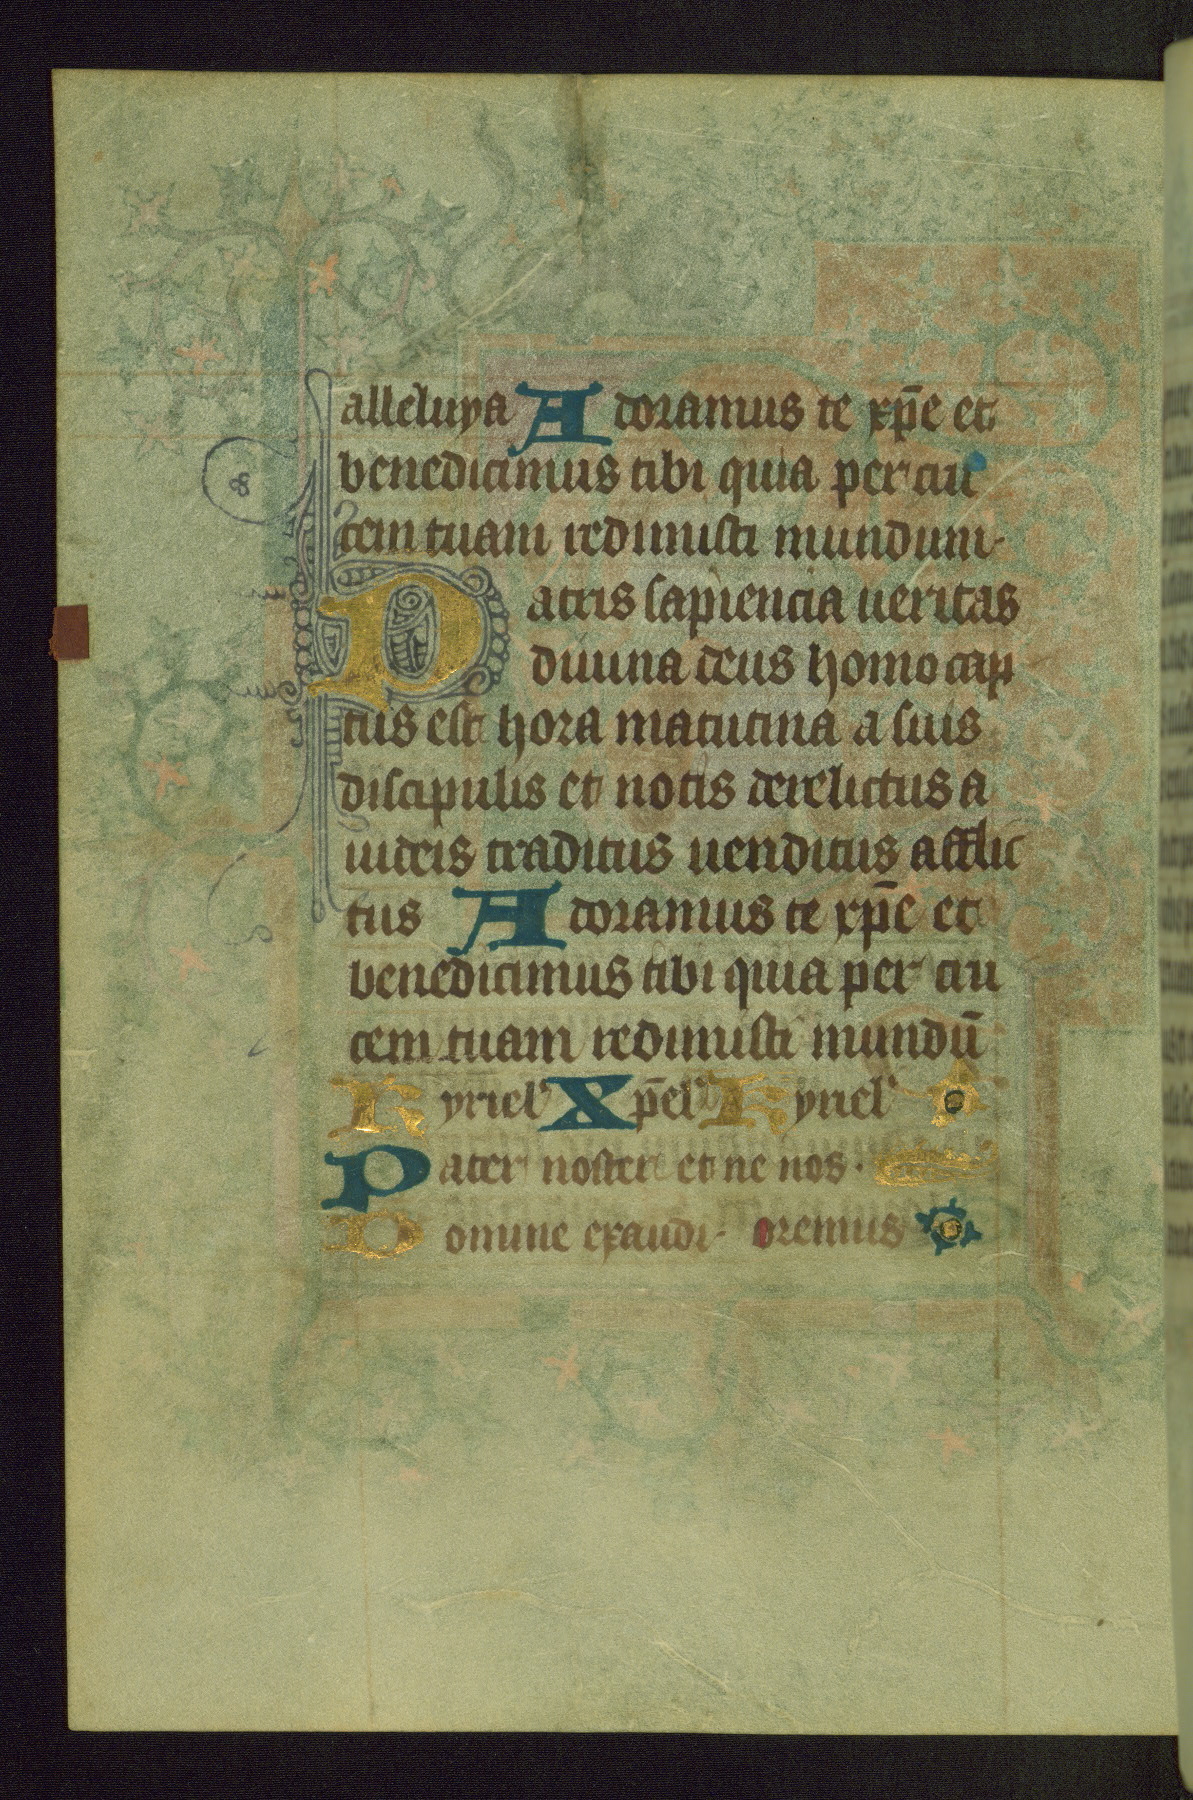 alleluya Adoramus te xp̄e et
benedicimus tibi quia per cru
cem tuam redimisti mundum·
Patris sapiencia ueritas
diuina deus homo cap
tus est hora matutina a suis
discipulis et notis derelictus a
iudeis traditus uenditus afflic
tus Adoramus te xp̄e et
benedicimus tibi quia per cru
cem tuam redimisti mundū
Kyriel' Xp̄el' Kyriel'
Pater noster et ne nos·
Domine exaudi· oremus